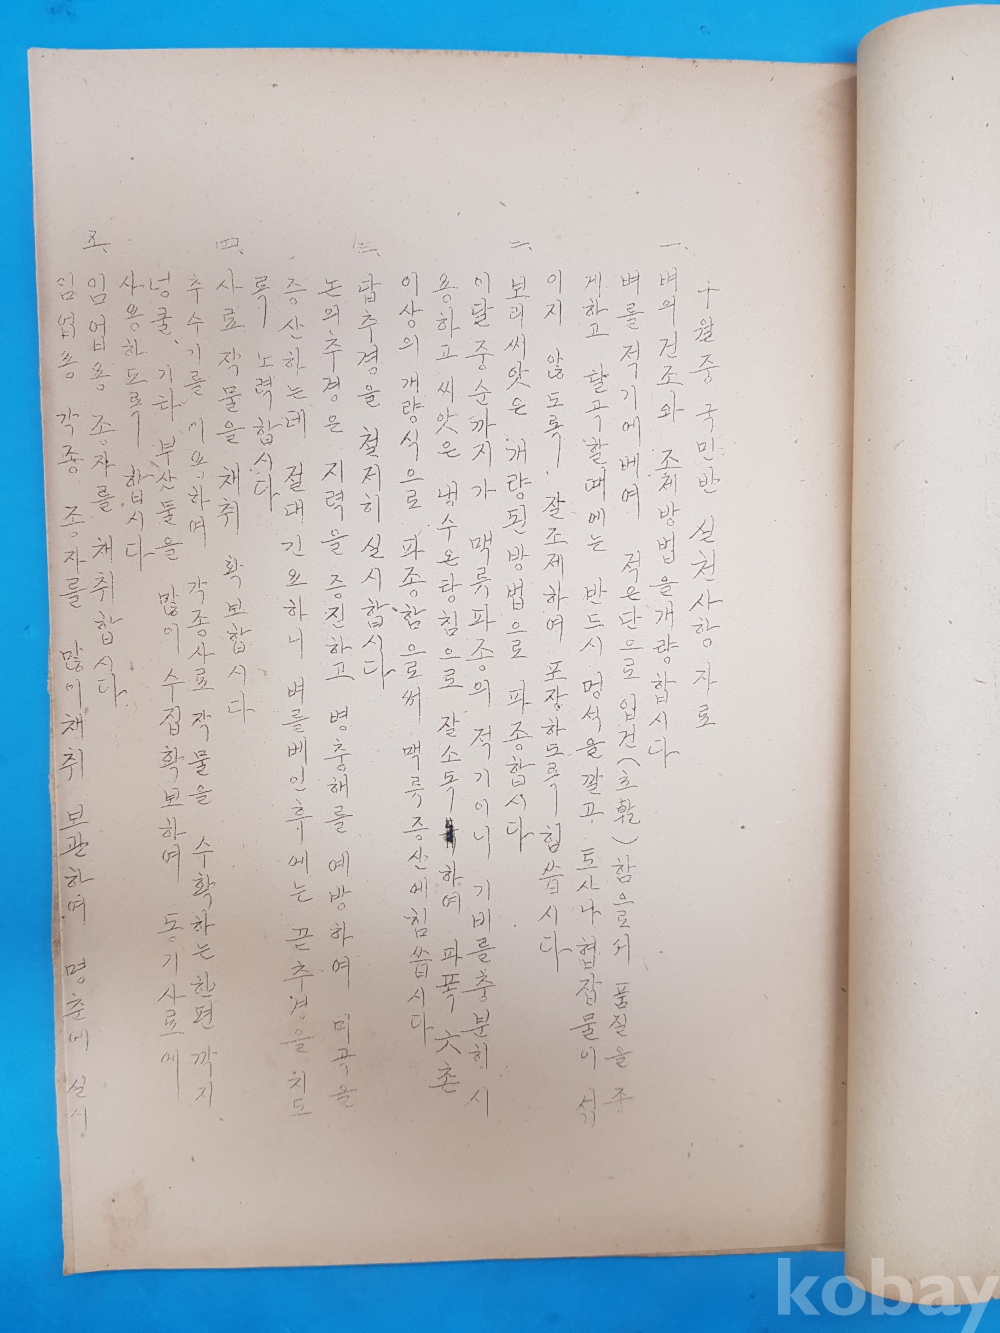 十월중 국민반 실천사항 자료
一、벼의건조와 조제방법을개량합시다
벼를적기에베여 적은단으로입건(立乾)함으로서 품질을주
게하고 탈곡할때에는 반드시멍석을깔고 토사나 협잡물이 석
이지 않도록 잘조제하여 포장하도록힘씁시다
二、보리씨앗은 개량된방법으로 파종합시다
이달중순까지가 맥류파종의 적기이니 기비를충분히시
용하고씨앗은 냉수온탕침으로 잘소독하여 파폭六촌
이상의개량식으로 파종함으로써 맥류증산에힘씁시다
三、답추경을 철저히실시합시다
논의추경은 지력을증진하고 병충해를예방하여 미곡을
증산하는데 절대긴요하니 벼를베인후에는 끝추경을치도
록 노력합시다
四、사료작물을채취 확보합시다
추수기를이용하여 각종사료작물을 수확하는한편 깍지
넝쿨、기타부산물을 많이수집확보하여 동기사료에
사용하도록합시다
五、임업용종자를채취합시다
임업용각종종자를 많이채취보관하여 명춘에실시
kobay